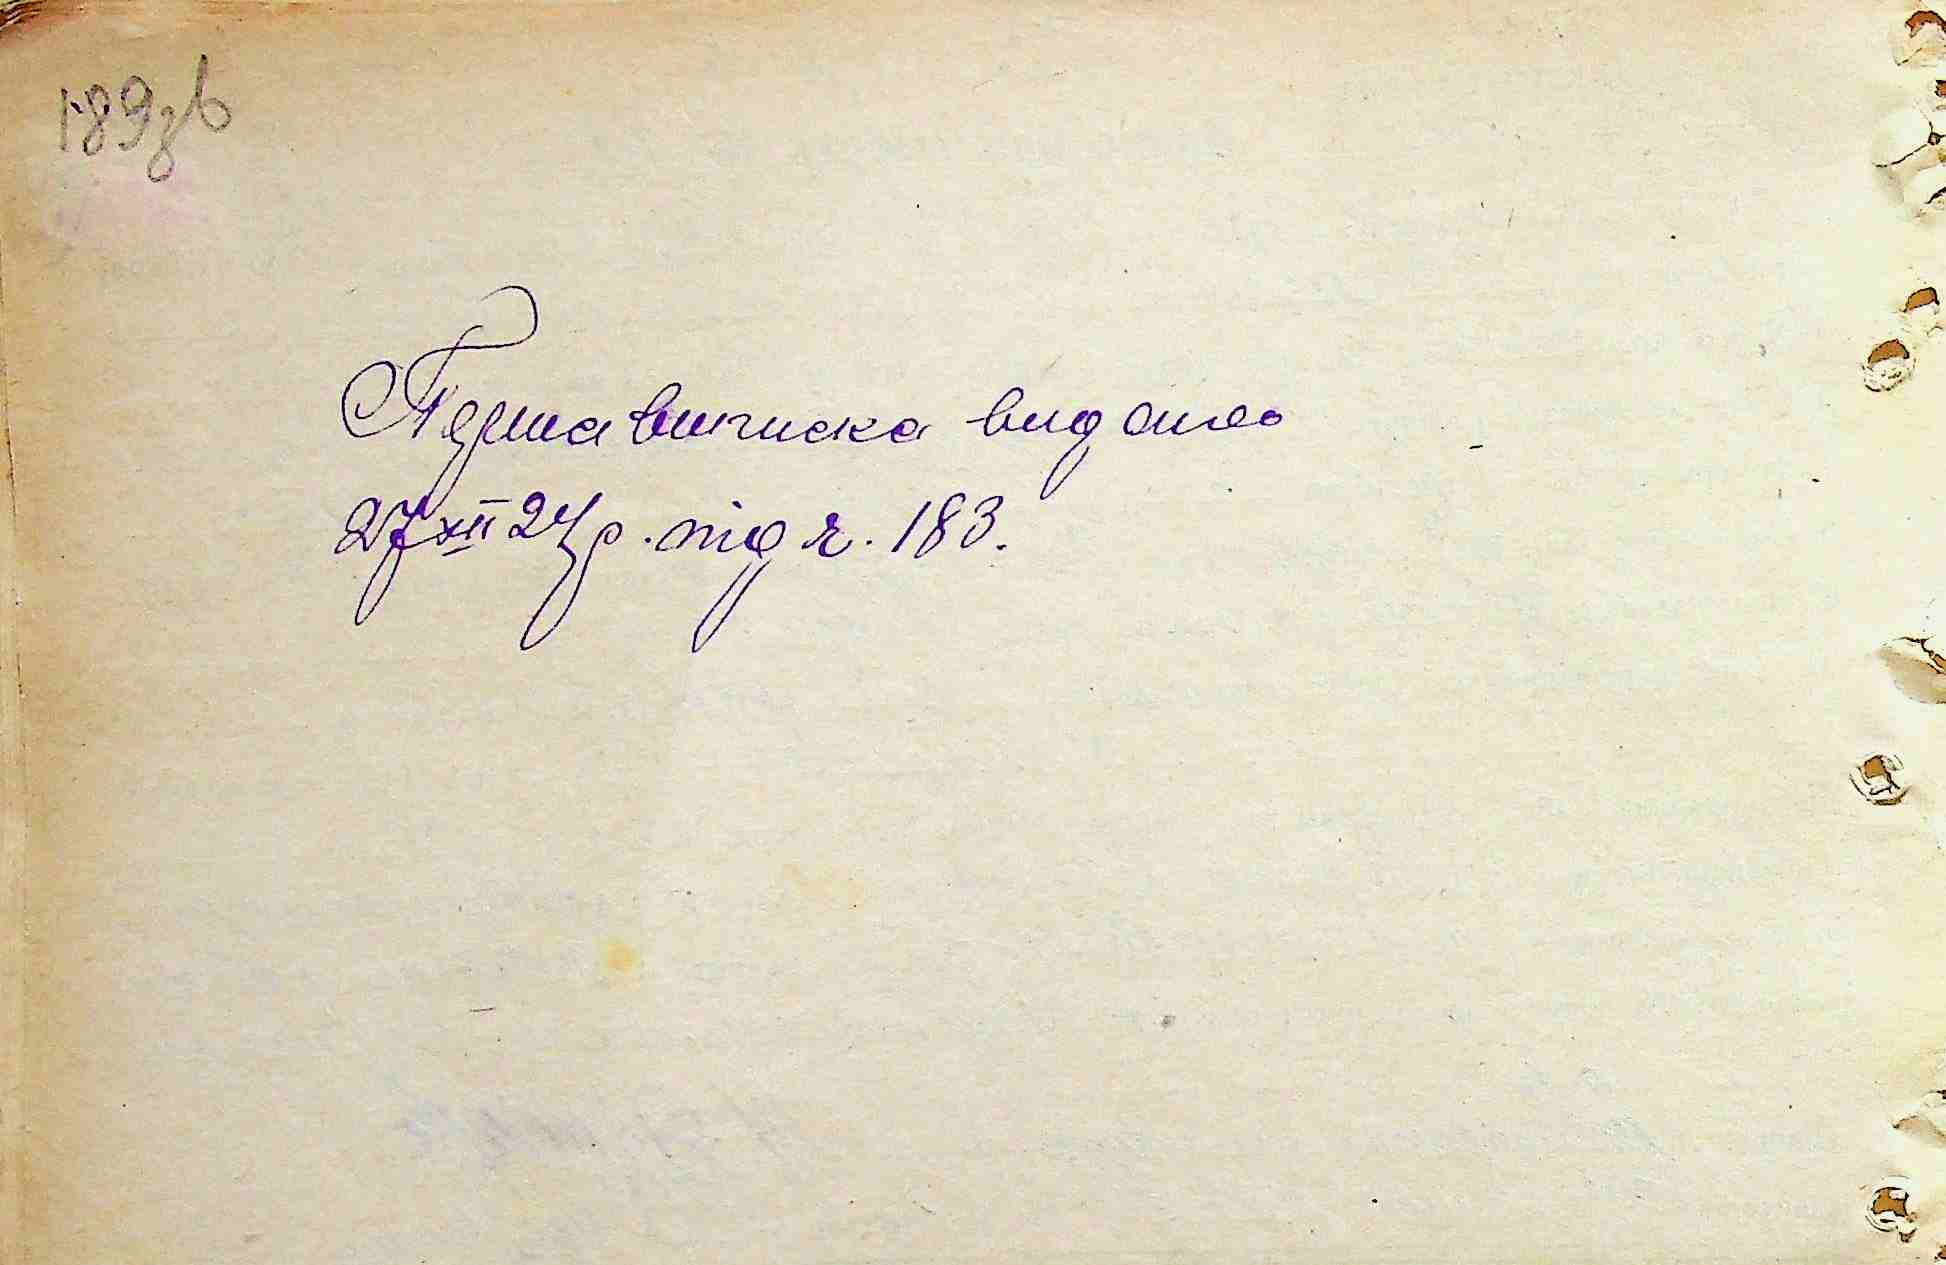 189зв
Перша виписка видана
27 XII 24 р. під ч. 183.